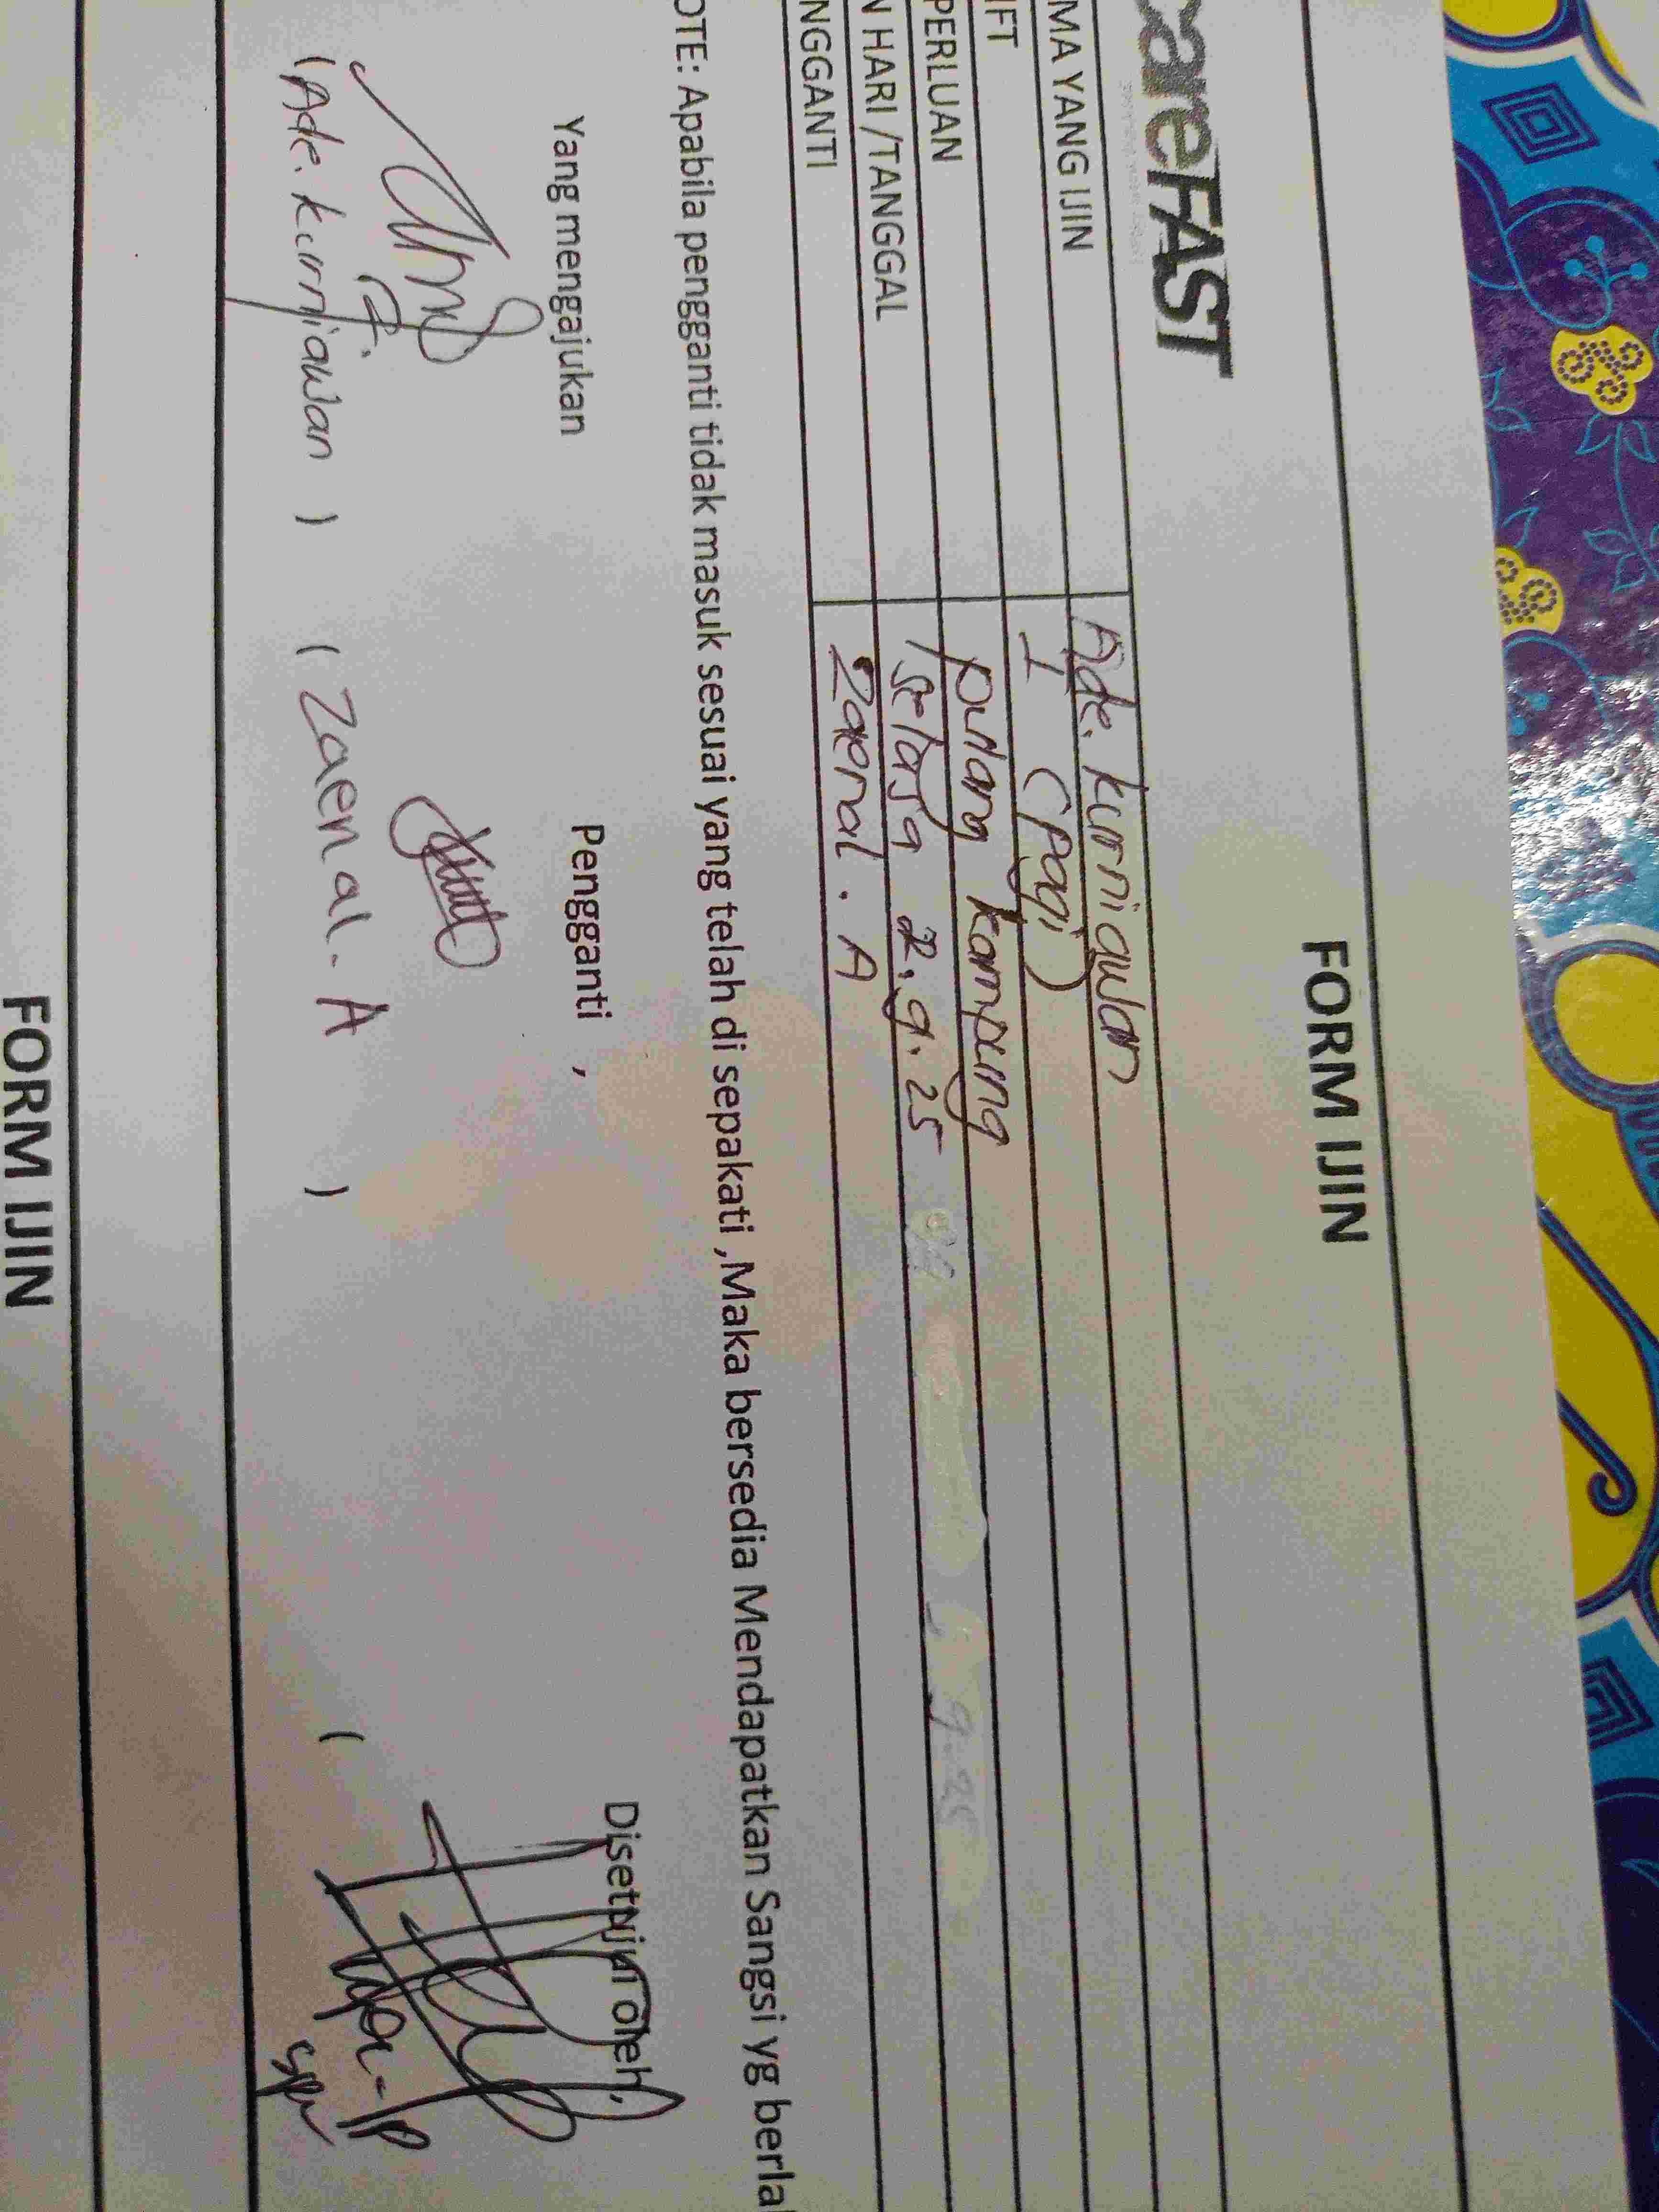 FORM IJIN
careFAST
MA YANG IJIN Ade. kurniawan
IFT 1 (pagi)
PERLUAN pulang kampung
N HARI /TANGGAL selasa 2.9.25
NGGANTI Zaenal. A
OTE: Apabila pengganti tidak masuk sesuai yang telah di sepakati ,Maka bersedia Mendapatkan Sangsi yg berla
Yang mengajukan Pengganti , Disetujui oleh,
(Ade. kurniawan ) ( Zaenal. A ) (
spv
FORM IJIN